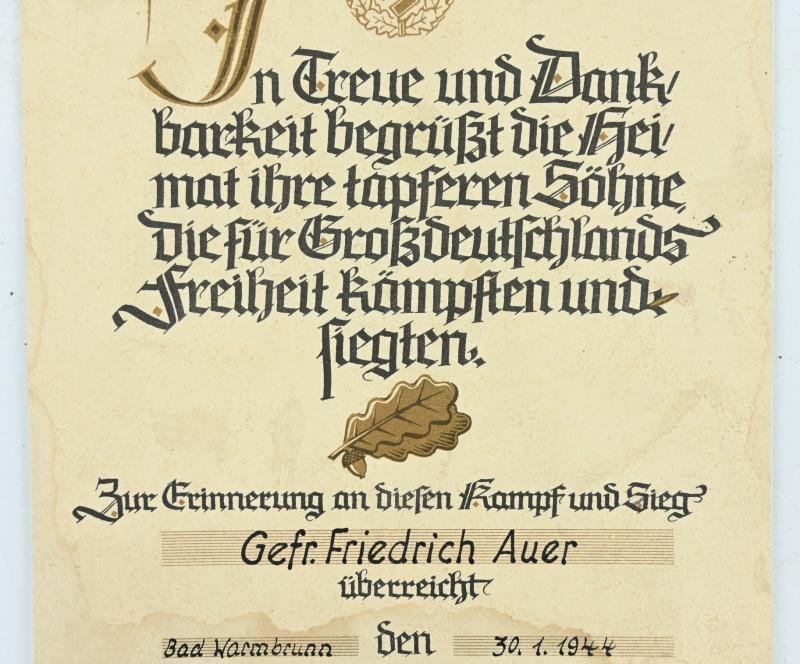 In Treue und Dank/
barkeit begrüßt die Hei/
mat ihre tapferen Söhne,
die für Großdeutschlands
Freiheit kämpften und
siegten.
Zur Erinnerung an diesen Kampf und Sieg
Gefr. Friedrich Auer
überreicht
Bad Warmbrunn den 30. 1. 1944